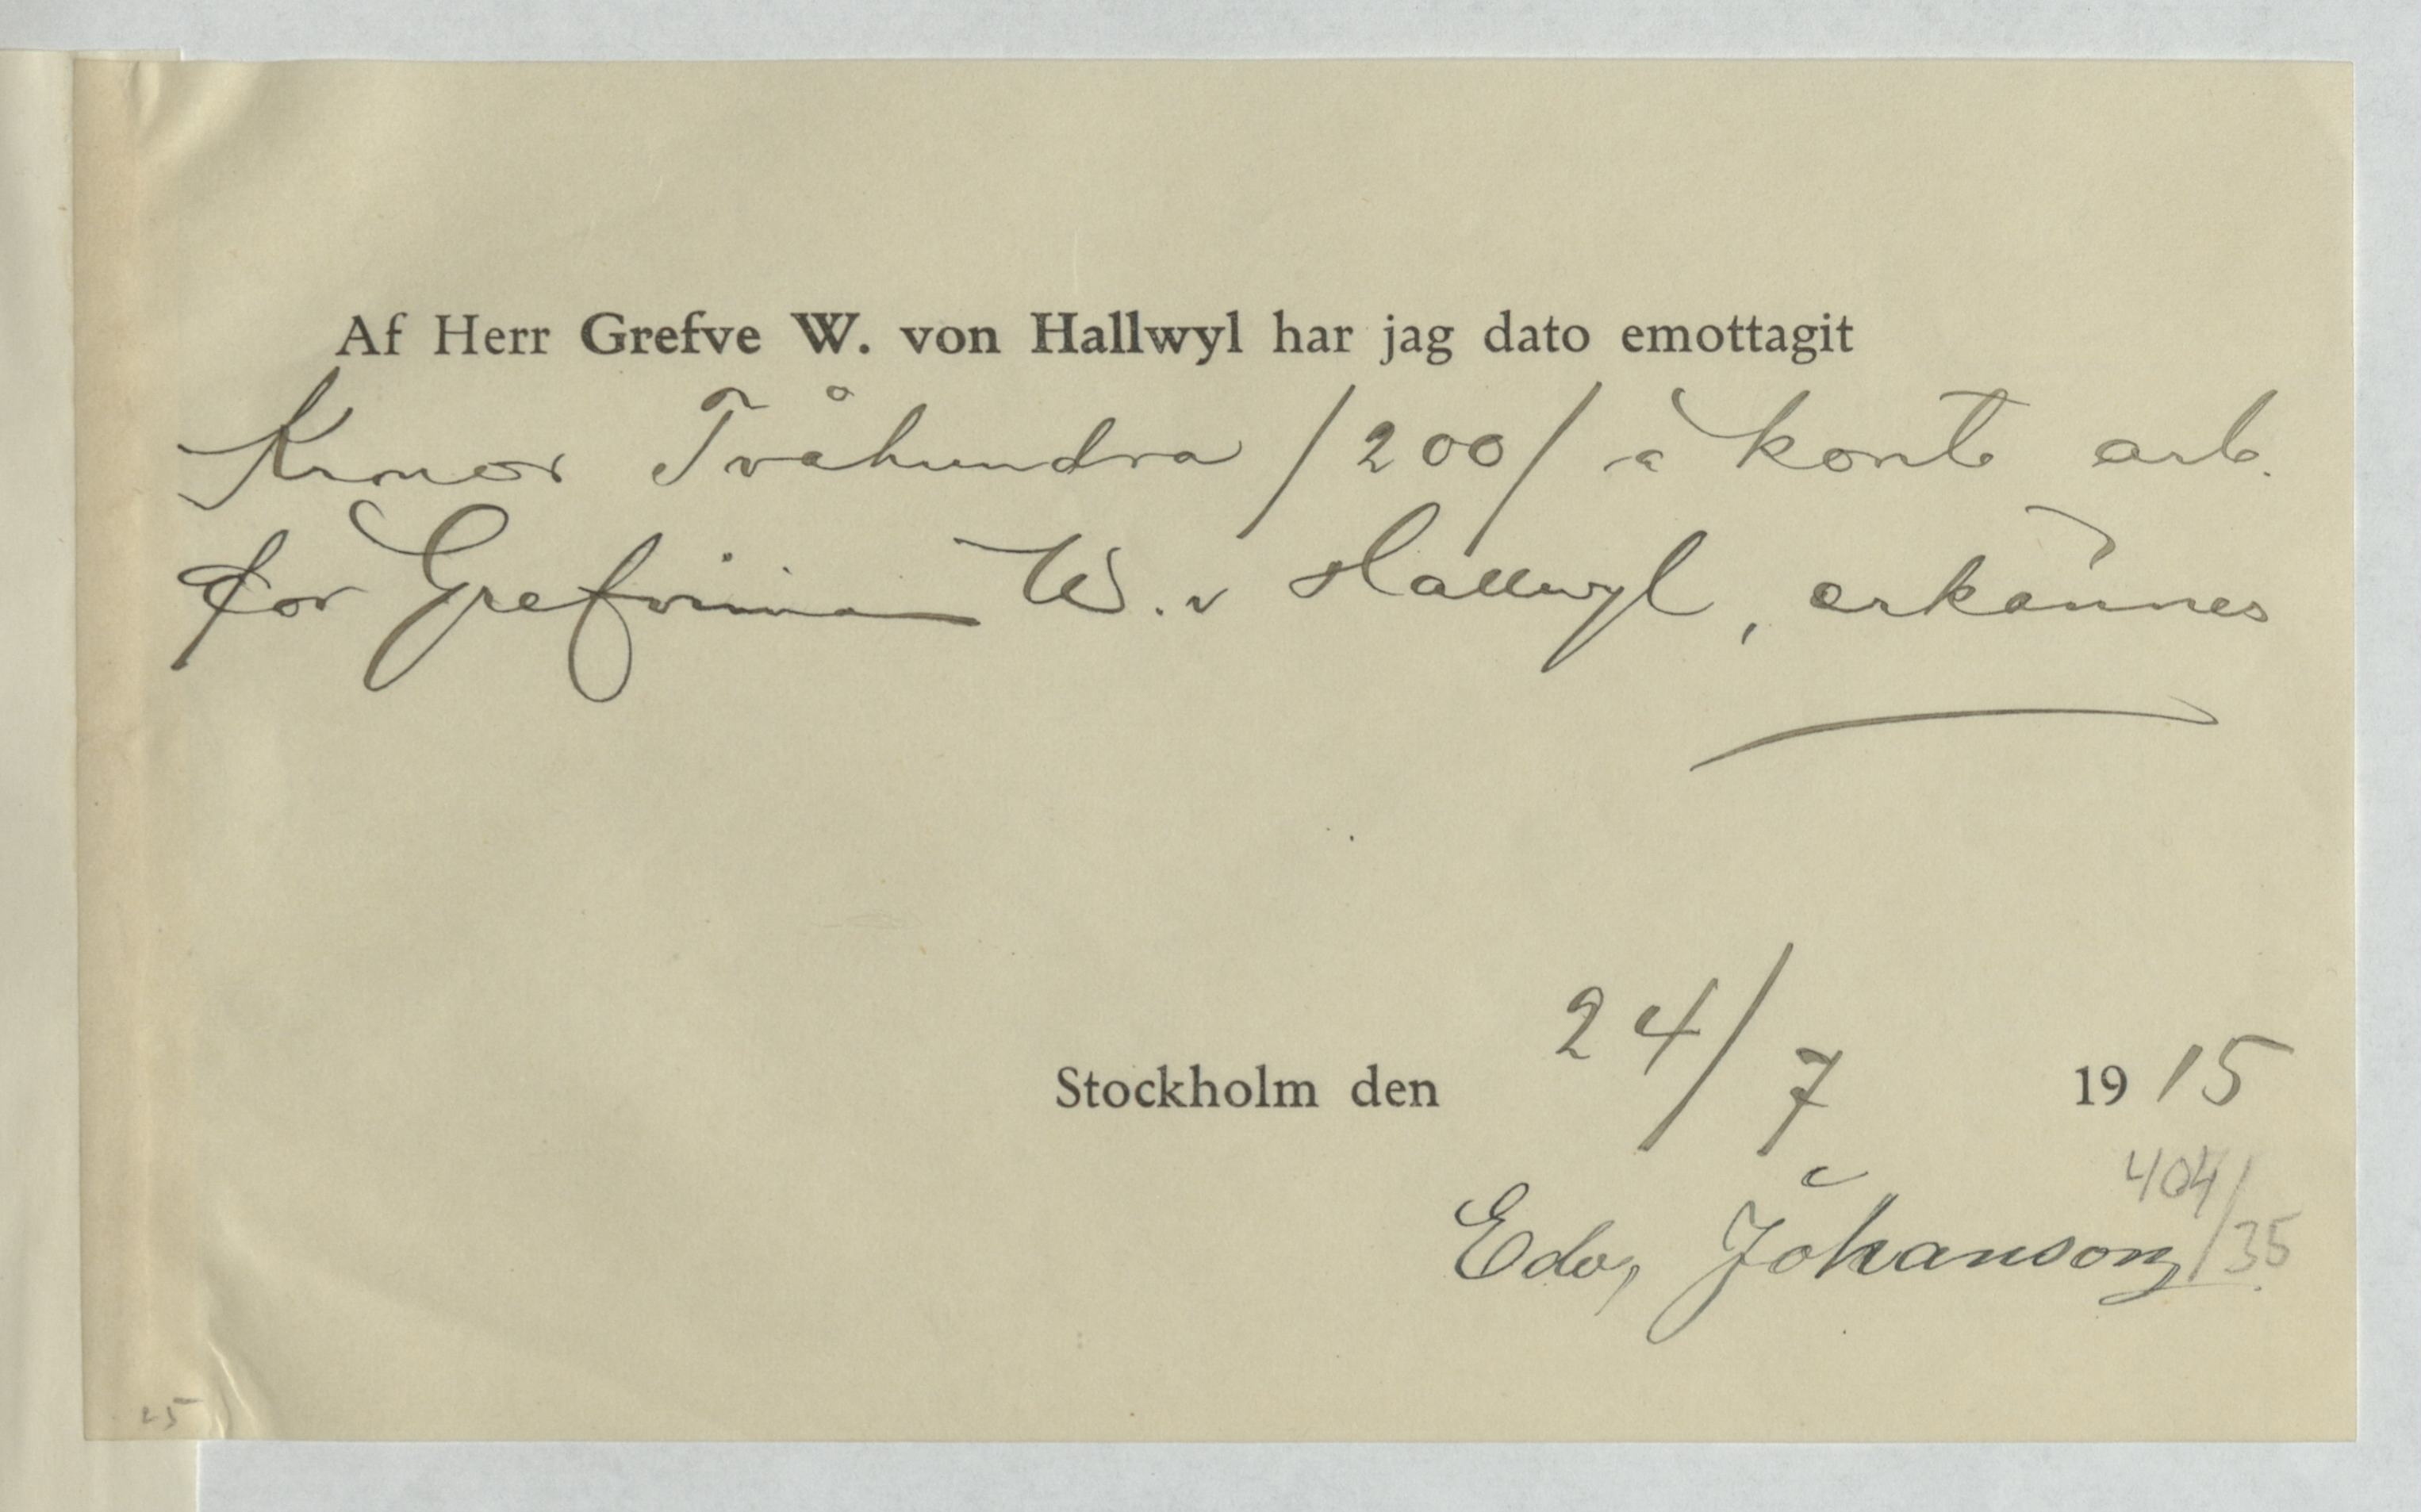 Af Herr Grefve W. von Hallwyl har jag dato emottagit
Kronor Tvåhundra /200/ a konto arb.
for Grefvinna W. v Hallwyl, erkännes
Stockholm den 24/7 1915
404/35
Edv, Johanson
25